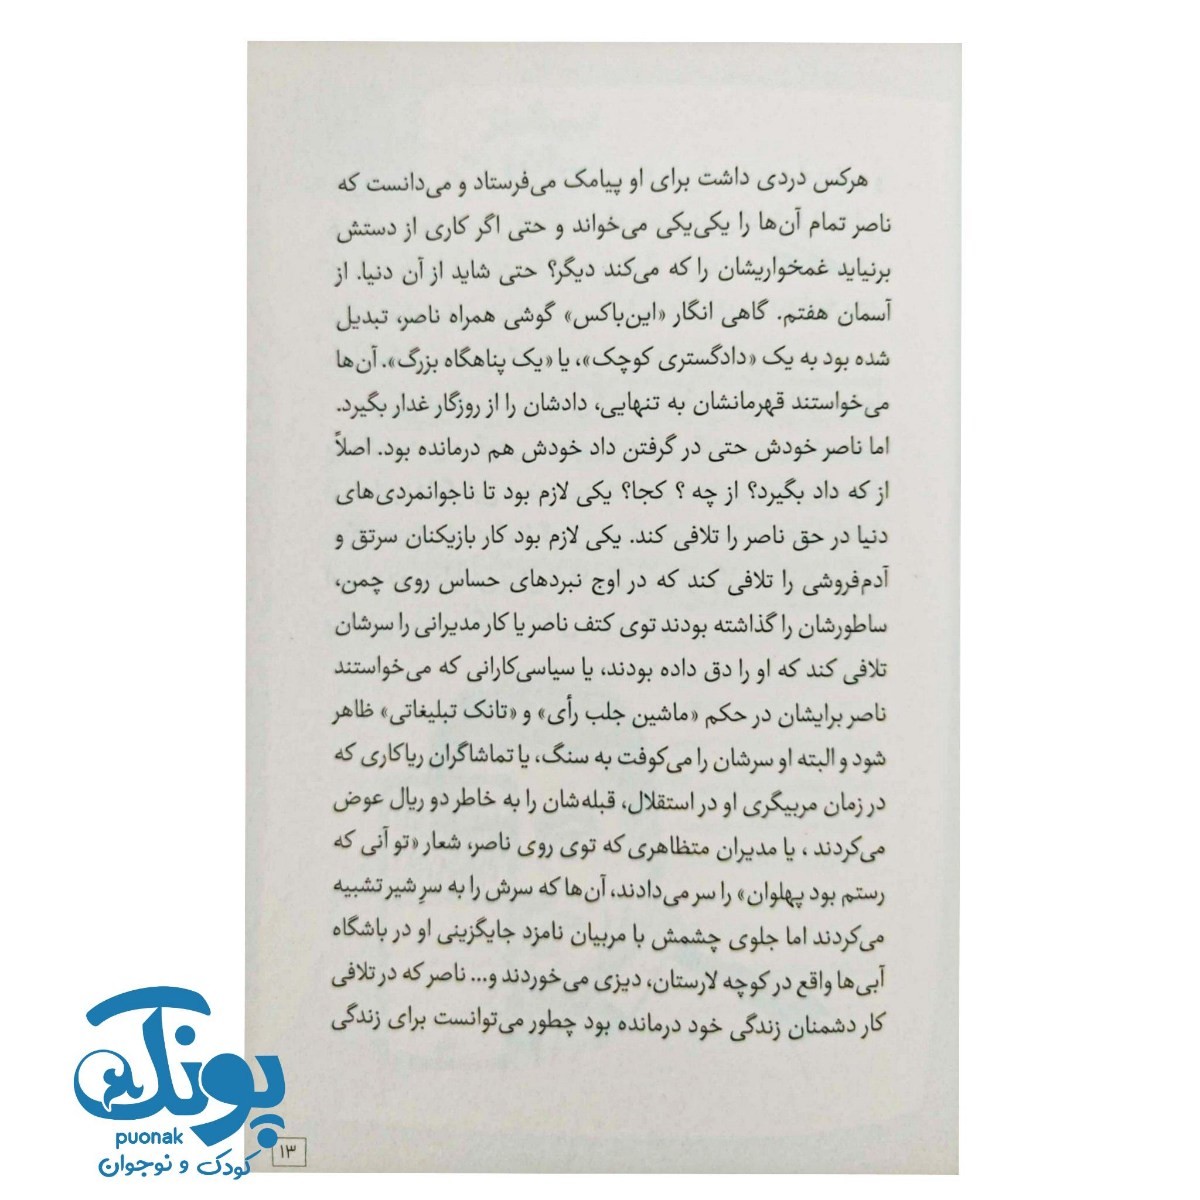 هرکس دردی داشت برای او پیامک می‌فرستاد و می‌دانست که
ناصر تمام آن‌ها را یکی‌یکی می‌خواند و حتی اگر کاری از دستش
برنیاید غمخواریشان را که می‌کند دیگر؟ حتی شاید از آن دنیا. از
آسمان هفتم. گاهی انگار «این‌باکس» گوشی همراه ناصر، تبدیل
شده بود به یک «دادگستری کوچک»، یا «یک پناهگاه بزرگ». آن‌ها
می‌خواستند قهرمانشان به تنهایی، دادشان را از روزگار غدار بگیرد.
اما ناصر خودش حتی در گرفتن داد خودش هم درمانده بود. اصلاً
از که داد بگیرد؟ از چه ؟ کجا؟ یکی لازم بود تا ناجوانمردی‌های
دنیا در حق ناصر را تلافی کند. یکی لازم بود کار بازیکنان سرتق و
آدم‌فروشی را تلافی کند که در اوج نبردهای حساس روی چمن،
ساطورشان را گذاشته بودند توی کتف ناصر یا کار مدیرانی را سرشان
تلافی کند که او را دق داده بودند، یا سیاسی‌کارانی که می‌خواستند
ناصر برایشان در حکم «ماشین جلب رأی» و «تانک تبلیغاتی» ظاهر
شود و البته او سرشان را می‌کوفت به سنگ، یا تماشاگران ریاکاری که
در زمان مربیگری او در استقلال، قبله‌شان را به خاطر دو ریال عوض
می‌کردند ، یا مدیران متظاهری که توی روی ناصر، شعار «تو آنی که
رستم بود پهلوان» را سر می‌دادند، آن‌ها که سرش را به سرِ شیر تشبیه
می‌کردند اما جلوی چشمش با مربیان نامزد جایگزینی او در باشگاه
آبی‌ها واقع در کوچه لارستان، دیزی می‌خوردند و... ناصر که در تلافی
کار دشمنان زندگی خود درمانده بود چطور می‌توانست برای زندگی
۱۳
پونک
puonak
کودک و نوجوان